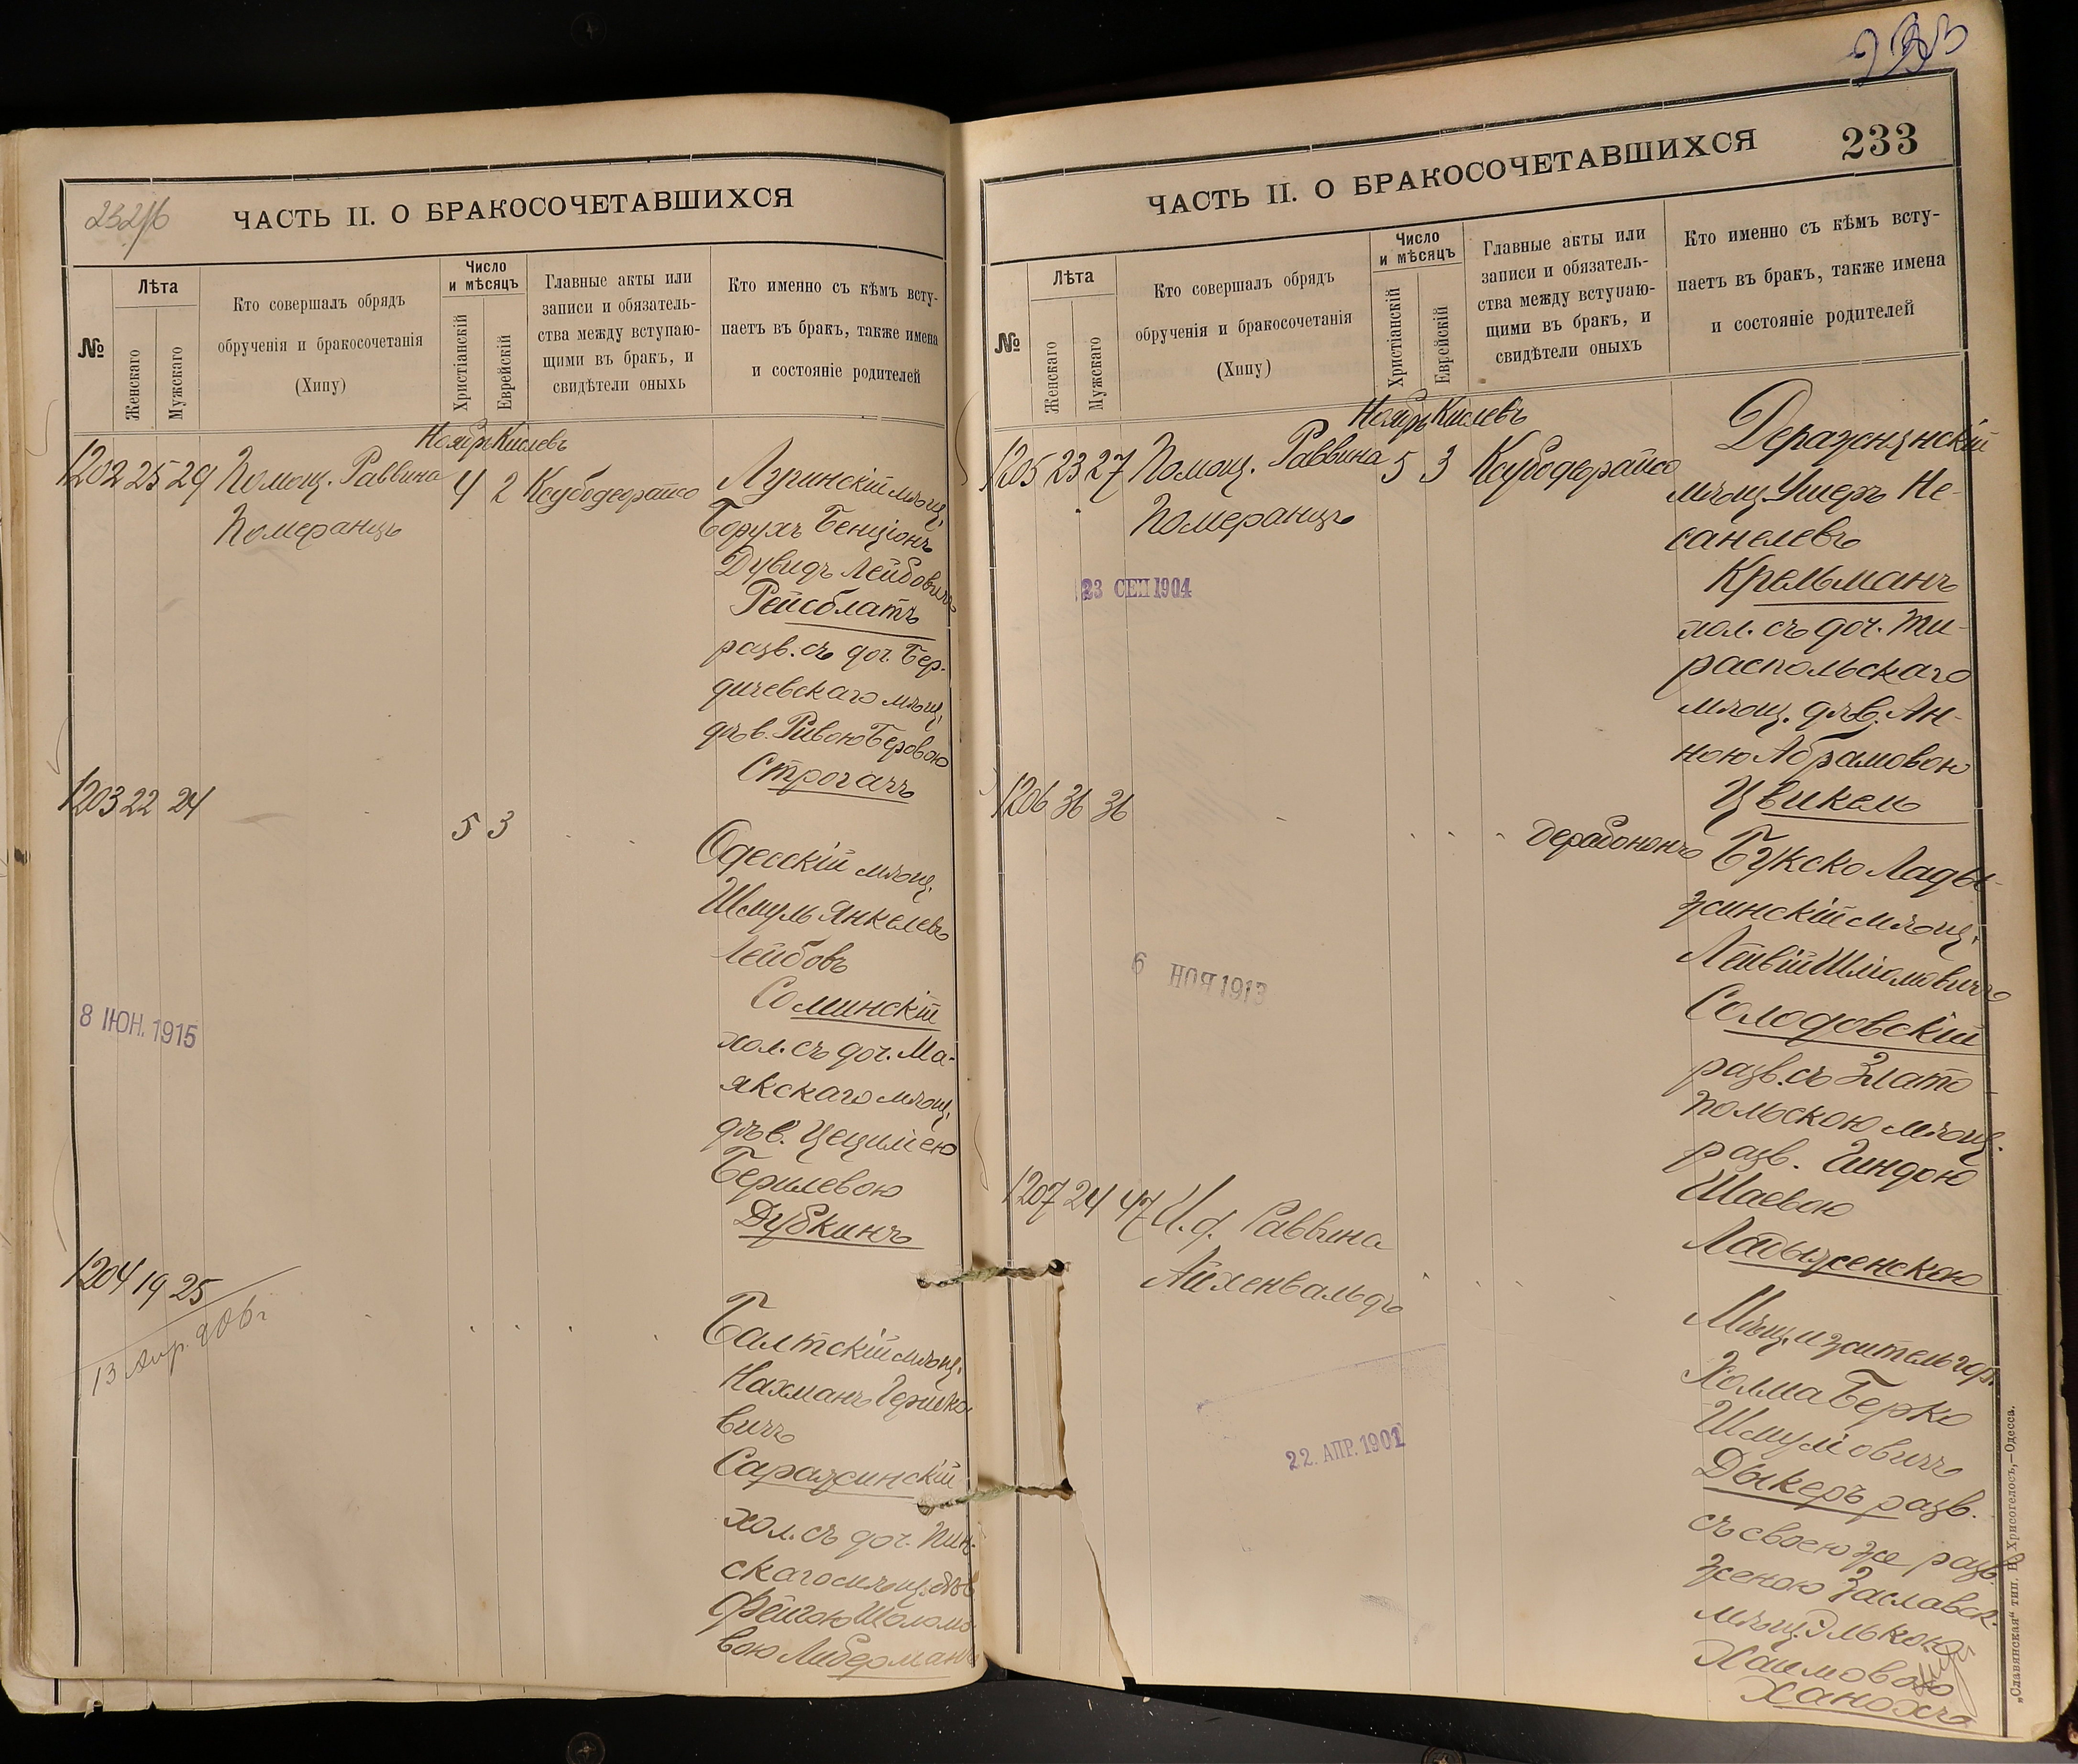 232/б
ЧАСТЬ II. О БРАКОСОЧЕТАВШИХСЯ
№
Лѣта
Женскаго
Мужскаго
Кто совершалъ обрядъ
обрученія и бракосочетанія
(Хипу)
Число
и мѣсяцъ
Христіанскій
Еврейскій
Главные акты или
записи и обязатель-
ства между вступаю-
щими въ бракъ, и
свидѣтели оныхъ
Кто именно съ кѣмъ всту-
паетъ въ бракъ, также имена
и состояніе родителей
Ноябрь Кислевъ
1202 25 29 Помощ. Раввина 4 2 Ксубодеорайсо
Померанцъ
Лугинскій мѣщ.
Борухъ Бенціонъ
Дувидъ Лейбовичъ
Рейсблатъ
разв. съ доч. Бер-
дичевскаго мѣщ.
дѣв. Ривою Беровою
Строгачъ
1203 22 24
5 3
Одесскій мѣщ.
Шмуль Янкелевъ
Лейбовъ
Соминскій
хол. съ доч. Ма-
якскаго мѣщ.
дѣв. Цециліею
Берилевою
Дубкинъ
8 ІЮН. 1915
1204 19 25
13 Апр. 906 г
Балтскій мѣщ.
Нахманъ Гершко
вичъ
Саражинскій
хол. съ доч. Пин-
скаго мѣщ. дѣв
Фейгою Шоломо
вою Либерманъ
233
ЧАСТЬ II. О БРАКОСОЧЕТАВШИХСЯ
233
№
Лѣта
Женскаго
Мужскаго
Кто совершалъ обрядъ
обрученія и бракосочетанія
(Хипу)
Число
и мѣсяцъ
Христіанскій
Еврейскій
Главные акты или
записи и обязатель-
ства между вступаю-
щими въ бракъ, и
свидѣтели оныхъ
Кто именно съ кѣмъ всту-
паетъ въ бракъ, также имена
и состояніе родителей
Ноябрь Кислевъ
1205 23 27 Помощ. Раввина 5 3 Ксубодеорайсо
Померанцъ
23 СЕП 1904
Деражнянскій
мѣщ. Ушеръ Не-
санелевъ
Крельманъ
хол. съ доч. Ти-
распольскаго
мѣщ. дѣв. Ан-
ною Абрамовою
Цвикель
1206 36 36
дерабононъ
Бужско Лады-
жинскій мѣщ.
Лейвій Шліомовичъ
Солодовскій
разв. съ Злато
польскою мѣщ.
разв. Гиндою
Шаевою
Ладыженскою
6 НОЯ 1913
1207 24 47 И. д. Раввина
Айхенвальдъ
22. АПР. 1901
Мѣщ. и житель гор.
Холма Берко
Шмуліовичъ
Дыкеръ разв.
съ своею же разв.
женою Заславск.
мѣщ. Элькою
Хаимовою
Ханохъ
„Славянская" тип. Н. Хрисогелосъ,—Одесса.